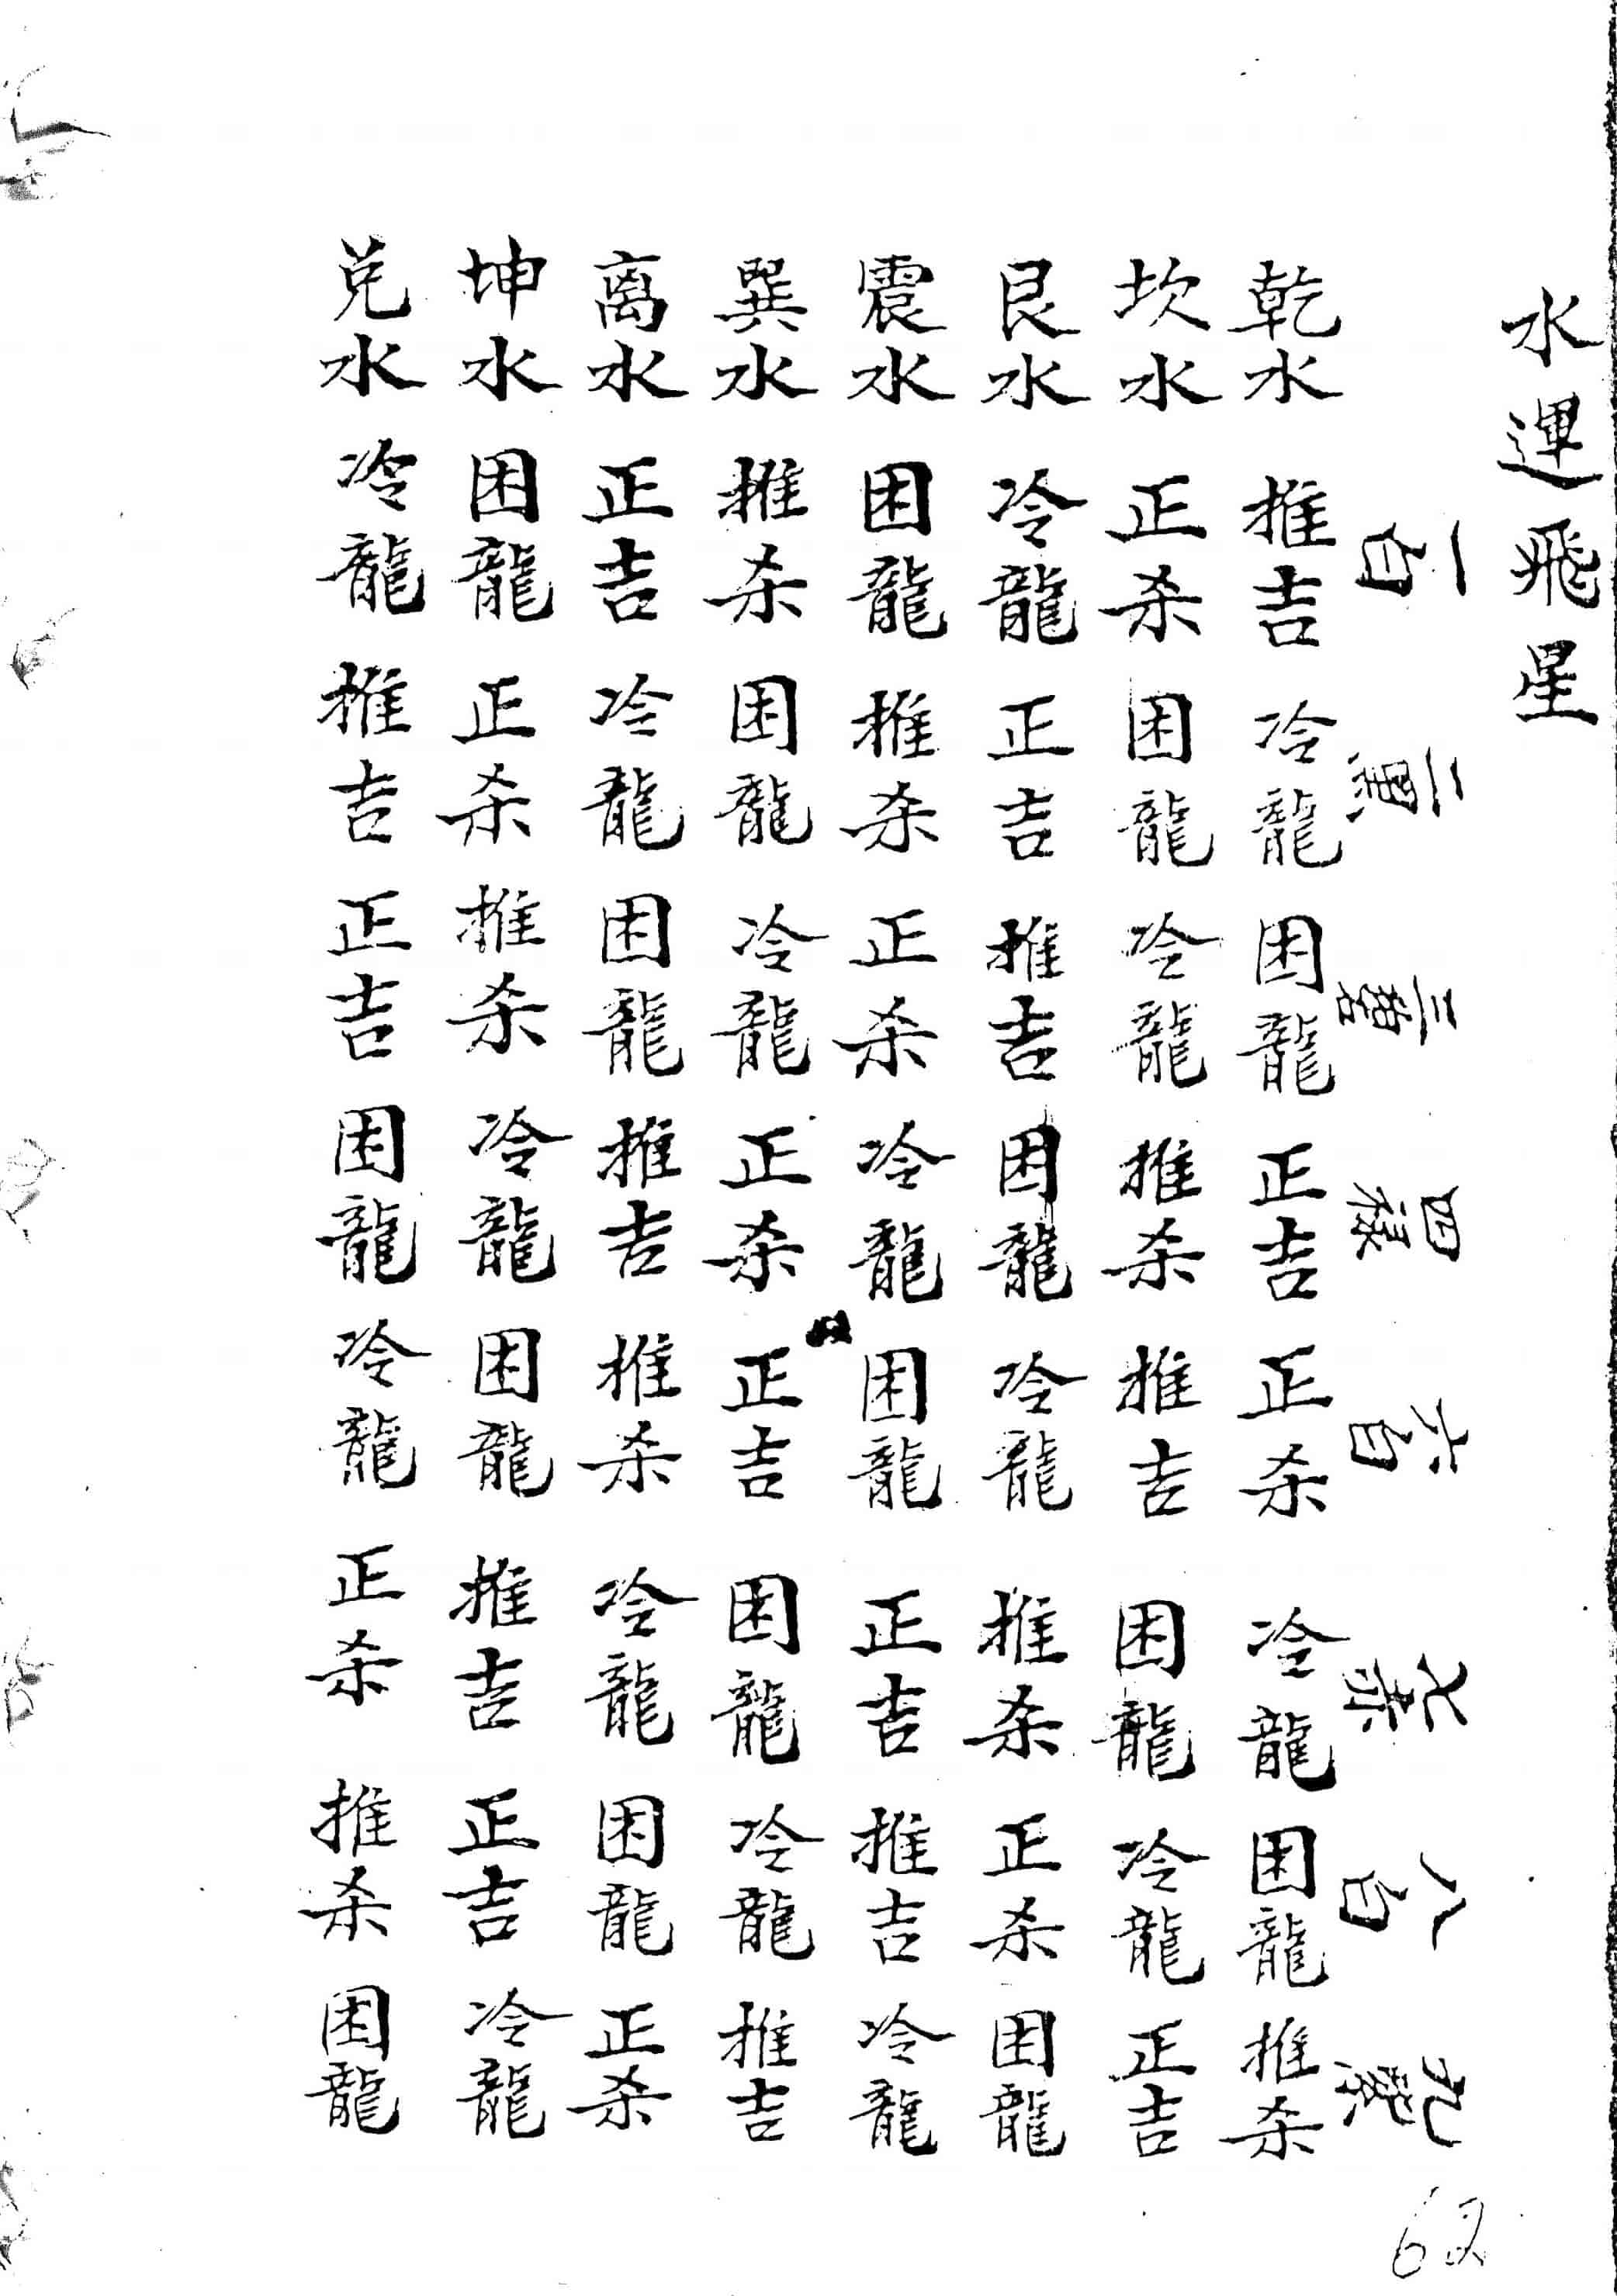 水運飛星
一白 二黑 三碧 四祿 六白 七赤 八白 九紫
乾水 推吉 冷龍 困龍 正吉 正杀 冷龍 困龍 推杀
坎水 正杀 困龍 冷龍 推杀 推吉 困龍 冷龍 正吉
艮水 冷龍 正吉 推吉 困龍 冷龍 推杀 正杀 困龍
震水 困龍 推杀 正杀 冷龍 困龍 正吉 推吉 冷龍
巽水 推杀 困龍 冷龍 正杀 正吉 困龍 冷龍 推吉
离水 正吉 冷龍 困龍 推吉 推杀 冷龍 困龍 正杀
坤水 困龍 正杀 推杀 冷龍 困龍 推吉 正吉 冷龍
兑水 冷龍 推吉 正吉 困龍 冷龍 正杀 推杀 困龍
62